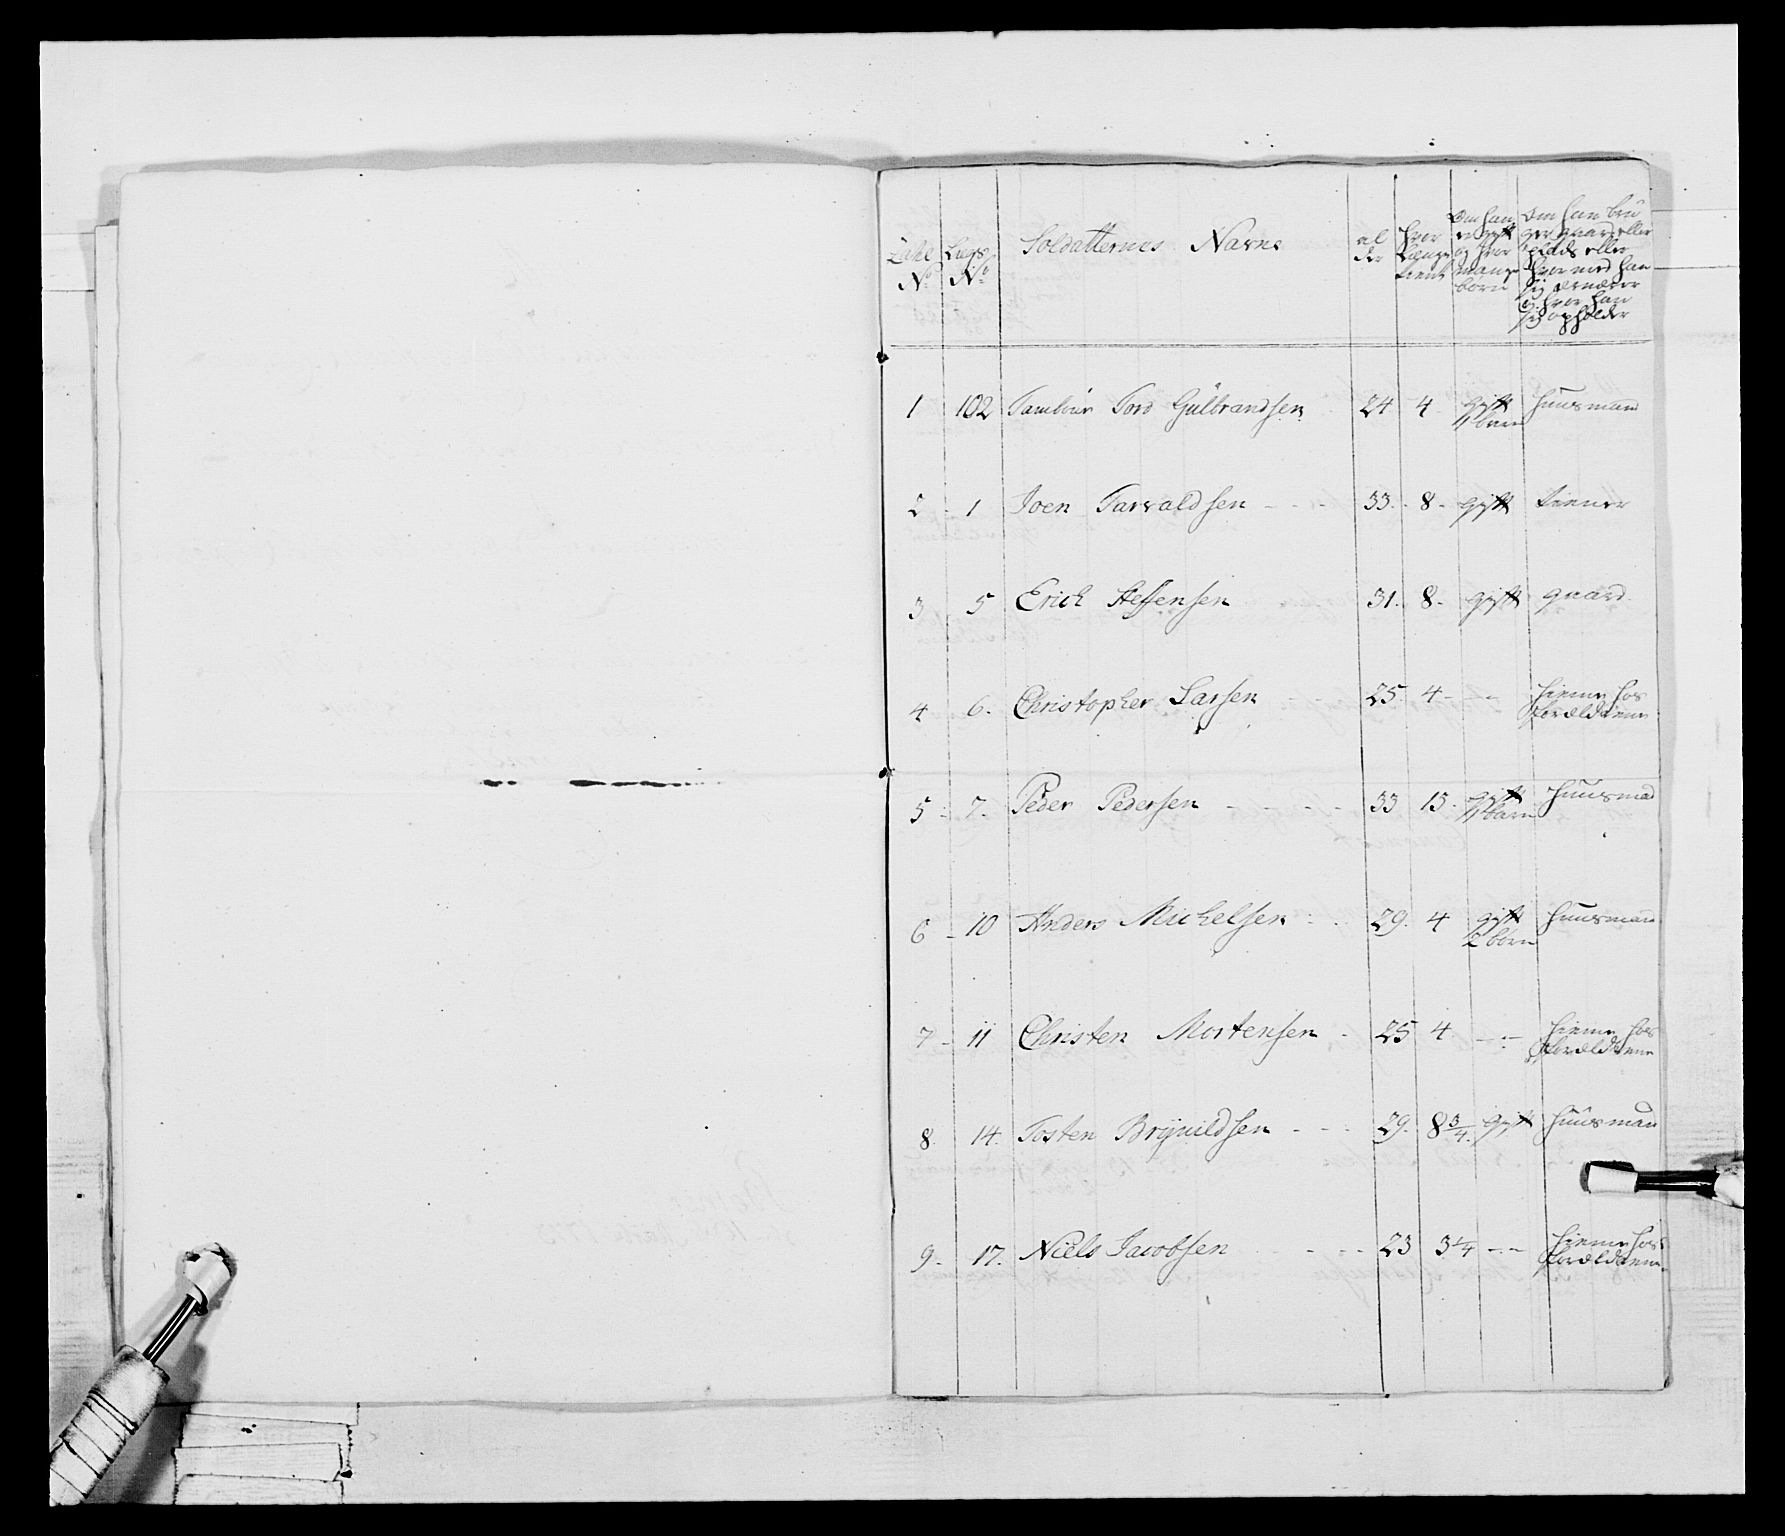 Zahl No
Legs No
Soldatternes Navne
al der
hvor Længe tient
Om han er gift og hvor mange börn
Om han bru ger gaard eller plads eller hvor med han sig ernærer og hvor han sig opholder
1 102 Tambour Tord Gulbrandsen 24 4 gift 1 barn huusmand
2 - 1 Joen Tarvaldsen - - - 33. 8 - gift tiener
3 5 Erich Steffensen 31. 8 - gift gaard
4 6. Christopher Larsen - - 25. 4 - - - hieme hos forældrene
5 - 7. Peder Pedersen - - - - 33 13. gift 1 barn huusmad
6 - 10 Anders Michelsen - - 29. 4 gift 2 börn huusman
7 - 11 Christen Mortensen - 25 4 - - hieme hos forældrene
8 14. Tosten Bryniildsen - - - 29. 8 3/4. gift huusman
9 - 17. Niels Jacobsen - - - - 23 3 1/4 - - hieme hos forældrene